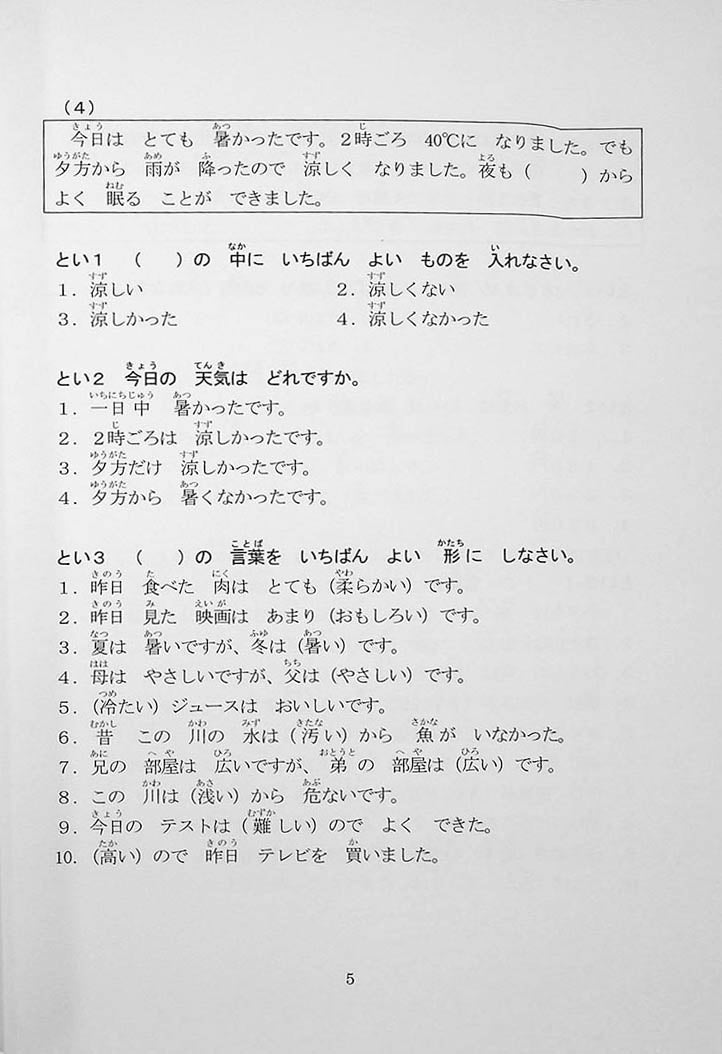 (4)
今日は　とても　暑かったです。2時ごろ　40℃に　なりました。でも
夕方から　雨が　降ったので　涼しく　なりました。夜も（　　）から
よく　眠る　ことが　できました。
とい1　（　　）の　中に　いちばん　よい　ものを　入れなさい。
1．涼しい　　2．涼しくない
3．涼しかった　　4．涼しくなかった
とい2　今日の　天気は　どれですか。
1．一日中　暑かったです。
2．2時ごろは　涼しかったです。
3．夕方だけ　涼しかったです。
4．夕方から　暑くなかったです。
とい3　（　　）の　言葉を　いちばん　よい　形に　しなさい。
1．昨日　食べた　肉は　とても（柔らかい）です。
2．昨日　見た　映画は　あまり（おもしろい）です。
3．夏は　暑いですが、冬は（暑い）です。
4．母は　やさしいですが、父は（やさしい）です。
5．（冷たい）ジュースは　おいしいです。
6．昔　この　川の　水は（汚い）から　魚が　いなかった。
7．兄の　部屋は　広いですが、弟の　部屋は（広い）です。
8．この　川は（浅い）から　危ないです。
9．今日の　テストは（難しい）ので　よく　できた。
10．（高い）ので　昨日　テレビを　買いました。
5